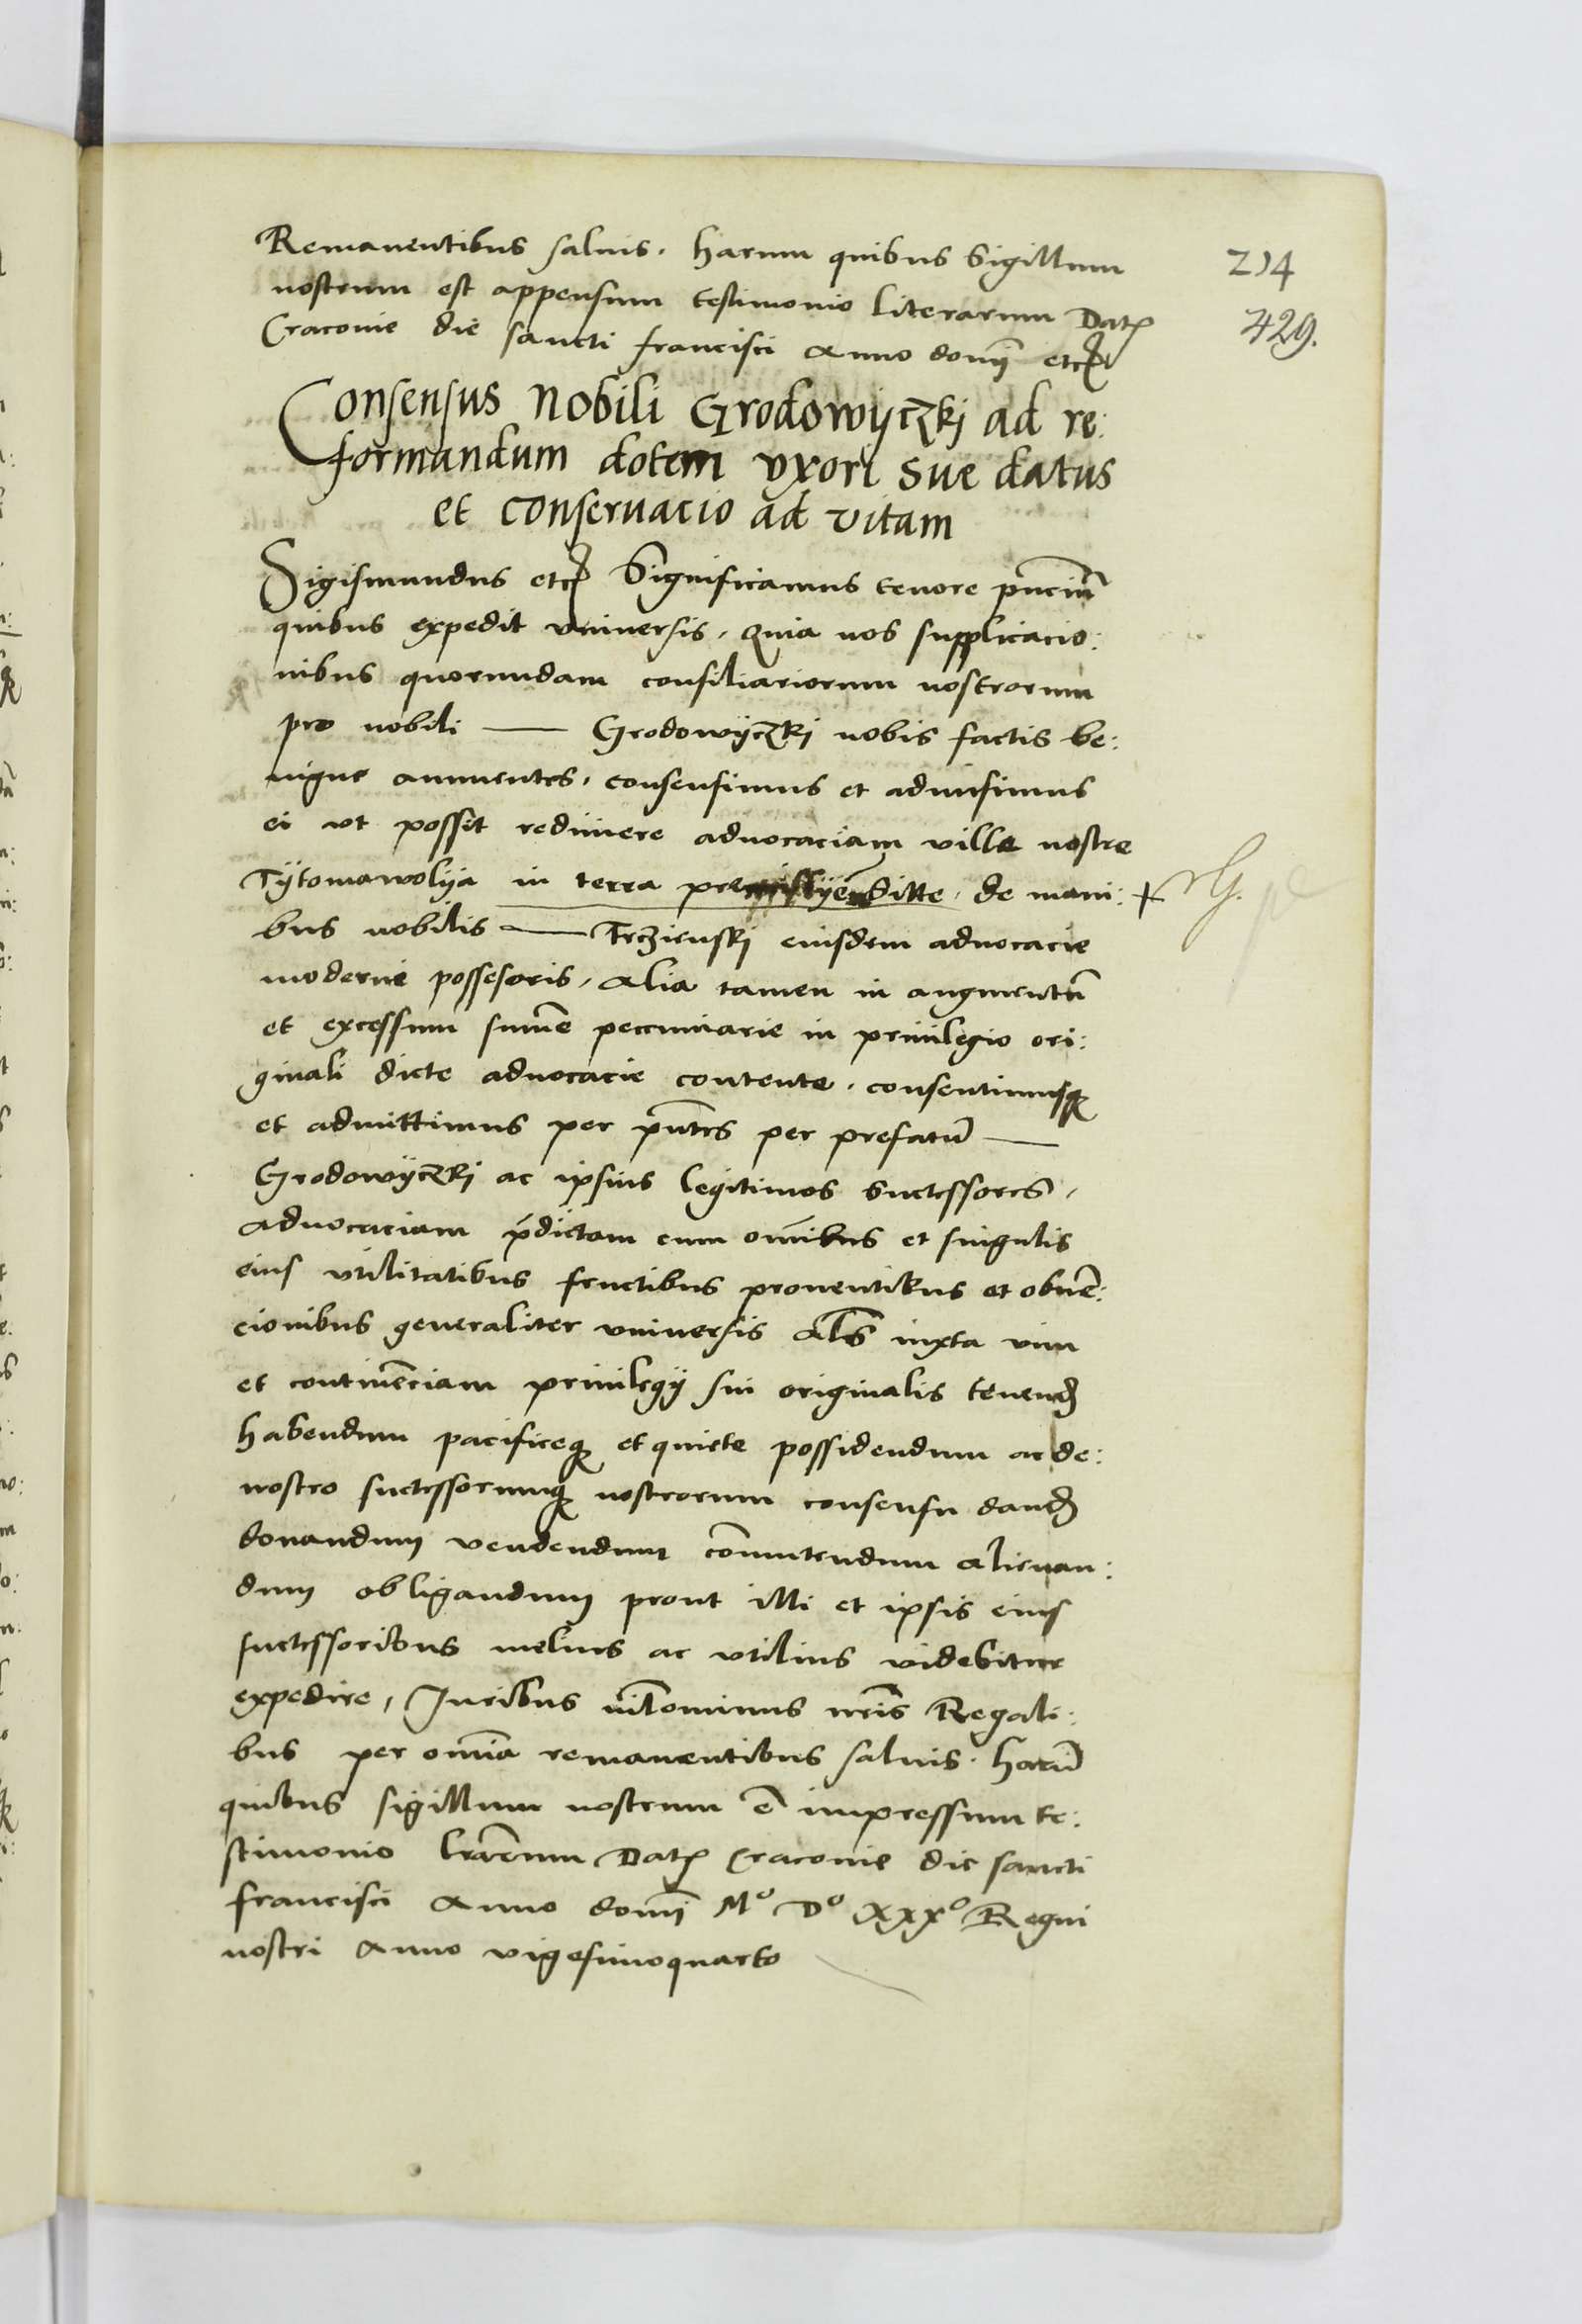 Remanentibus saluis. harum quibus Sigillum
nostrum est appensum testimonio literarum Dat
Cracouie die sancti francisci Anno domī etc
214
429.
Consensus Nobili Grodowÿczkj ad re:
formandum dotem vxori sve datus
et conseruacio ad vitam
Sigismundus etc Significamus tenore pñciū
quibus expedit vniuersis. quia nos supplicacio:
nibus quorundam consiliariorum nostrorum
pro nobili — Grodowÿczkj nobis factis be:
nigne annuentes. consensimus et admisimus
ei vt possit redimere aduocaciam ville nostre
Tÿtomawolya in terra sitte. de mani: +
bus nobilis — Trczienskj eiusdem aduocacie
moderni possesoris. Alia tamen in augmentū
et excessum sume peccuniarie in priuilegio ori:
ginali dicte aduocacie contente. consentimusq
et admittimus per pntes per prefatū —
Grodowÿczkj ac ipsius legitimos successores,
aduocaciam pdictam cum omībus et singulis
eius vtilitatibus fructibus prouentibus et obuē:
cionibus generaliter vniuersis als iuxta vim
et continēciam priuilegÿ sui originalis tenend
habendum pacificeq et quiete possidendum ac de:
nostro successorumq nostrorum consensu dand
donandum vendendum cōmutendum alienan:
dum obligandum prout illi et ipsis eius
successoribus melius ac vtilius videbitur
expedire, Juribus nris Regali:
bus per omīa remanentibus saluis. harū
quibus sigillum nostrum ē impressum te:
stimonio lrarum Dat Cracouie die sancti
francisci Anno domī Mº Dº xxxº Regni
nostri Anno vigesimoquarto